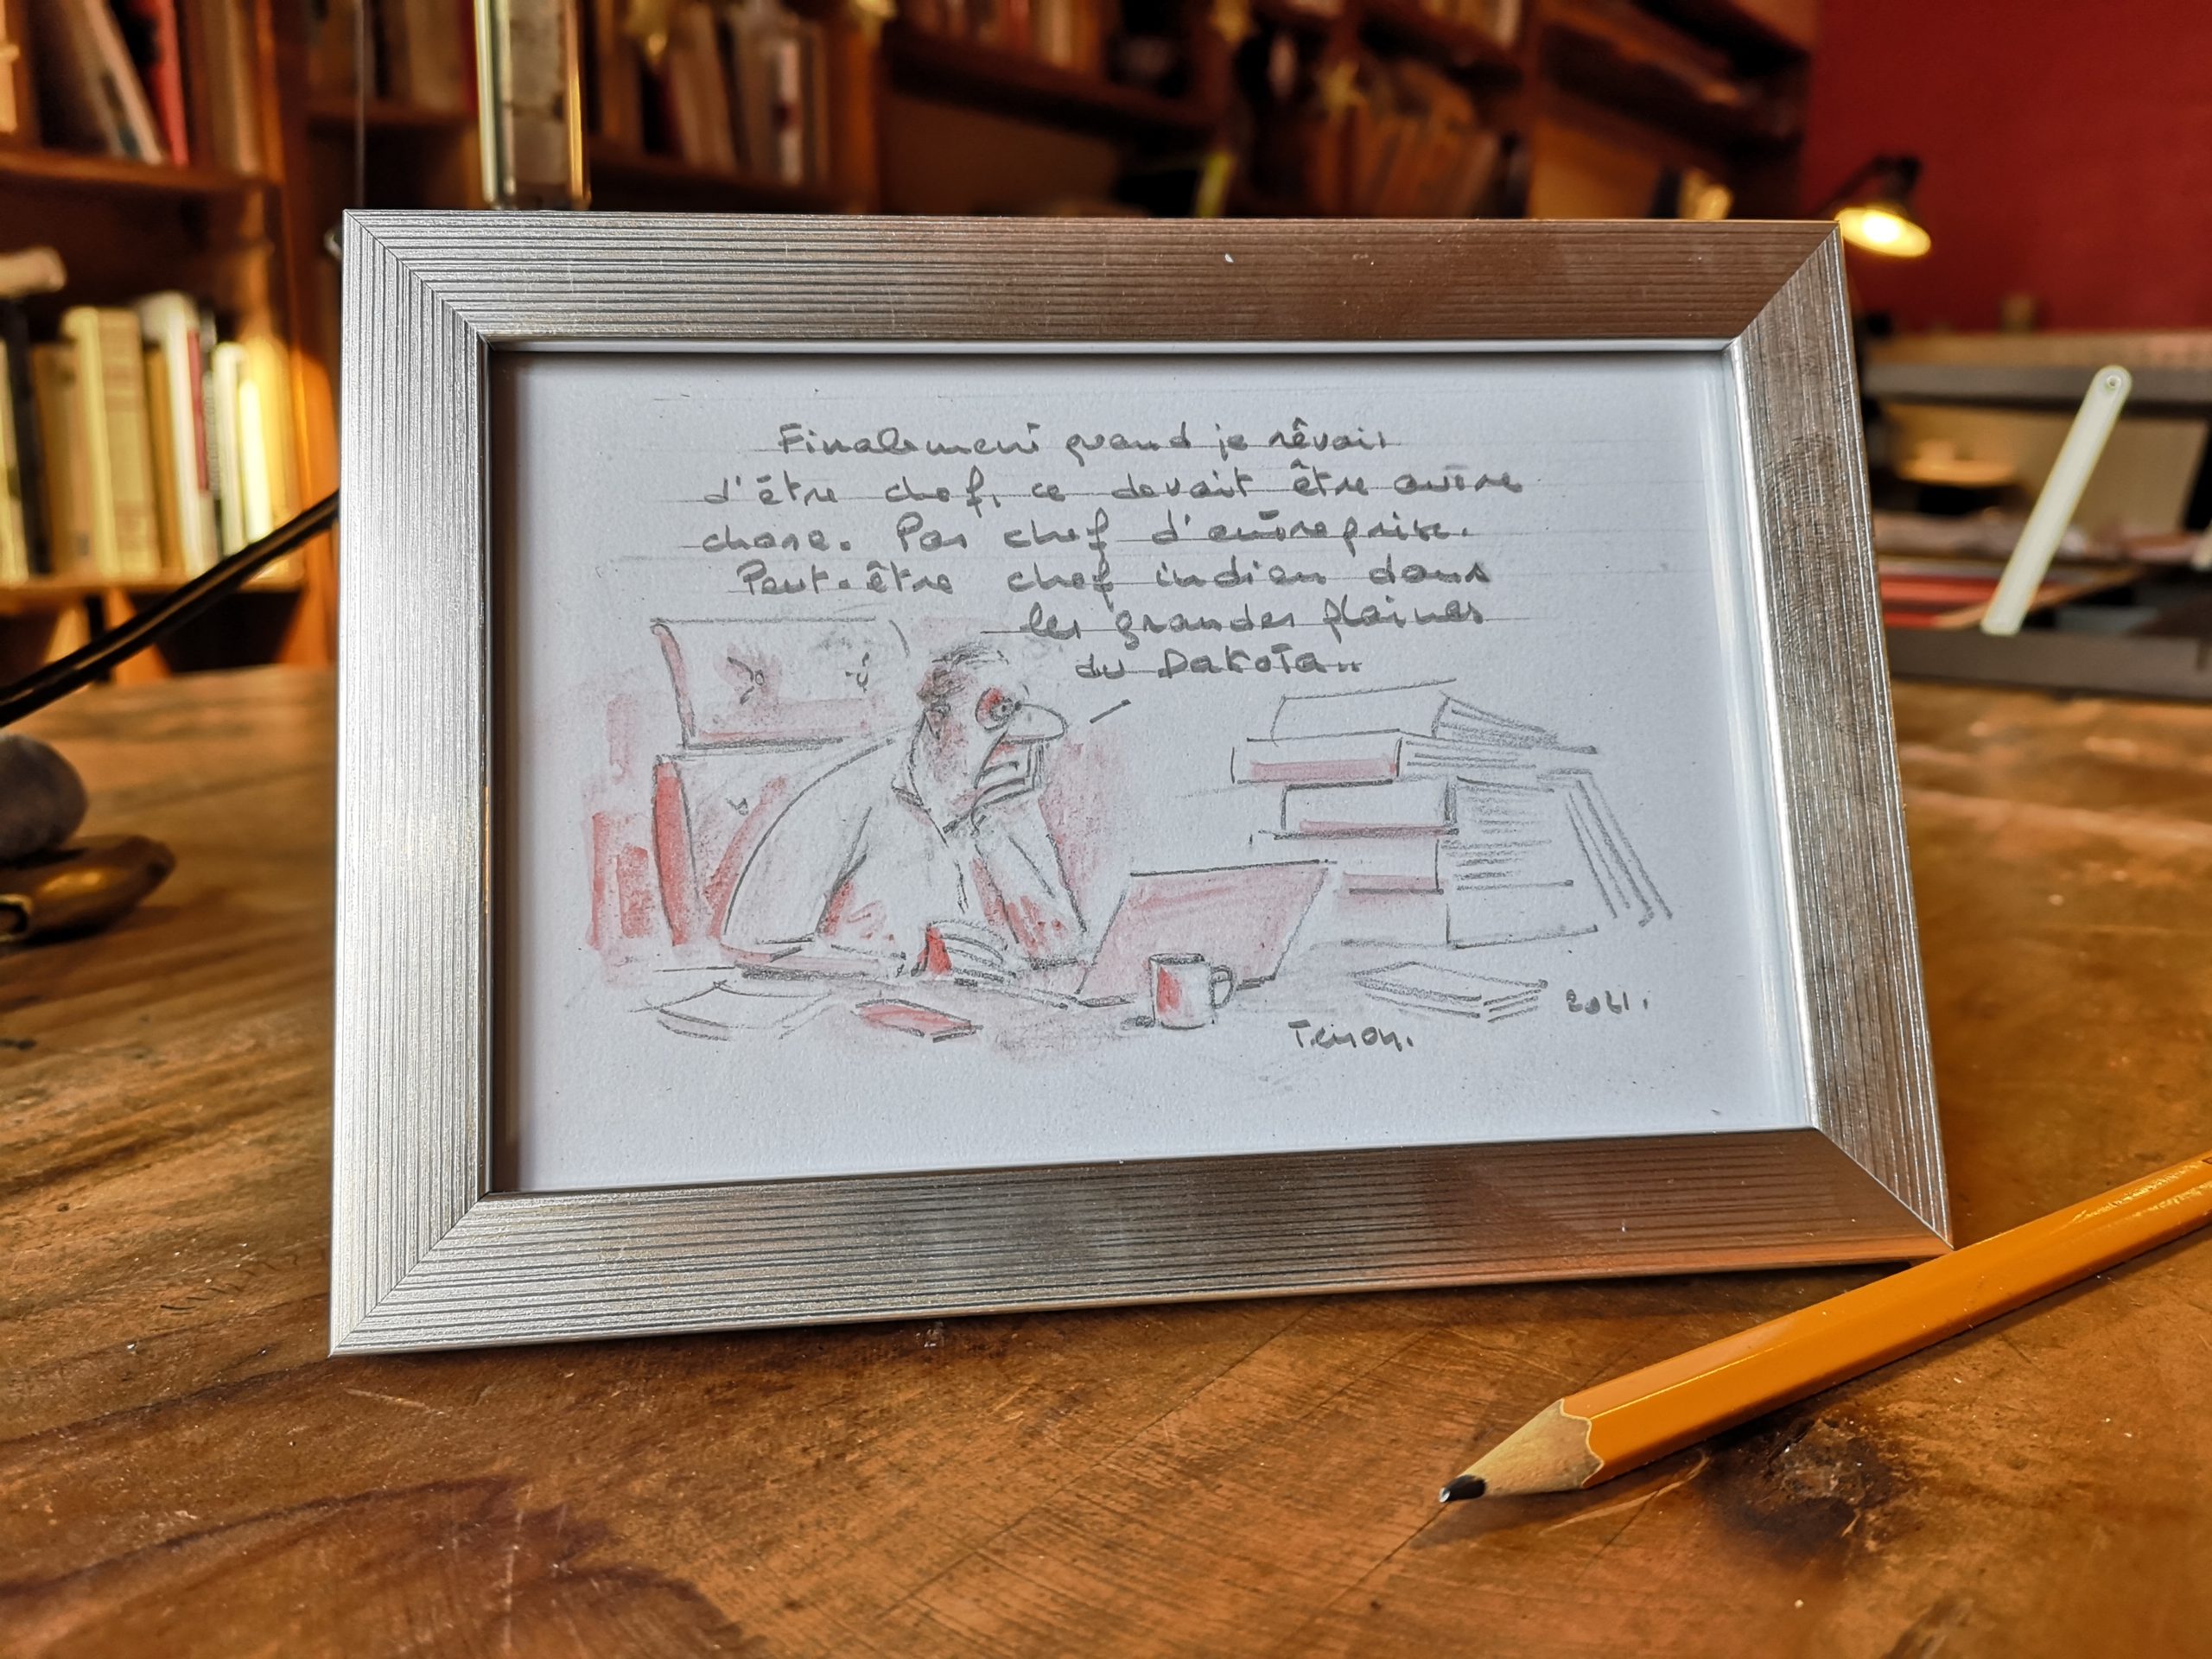 Finalement quand je rêvais
d'être chef, ce devait être autre
chose. Pas chef d'entreprise.
Peut-être chef indien dans
les grandes plaines
du Dakota..